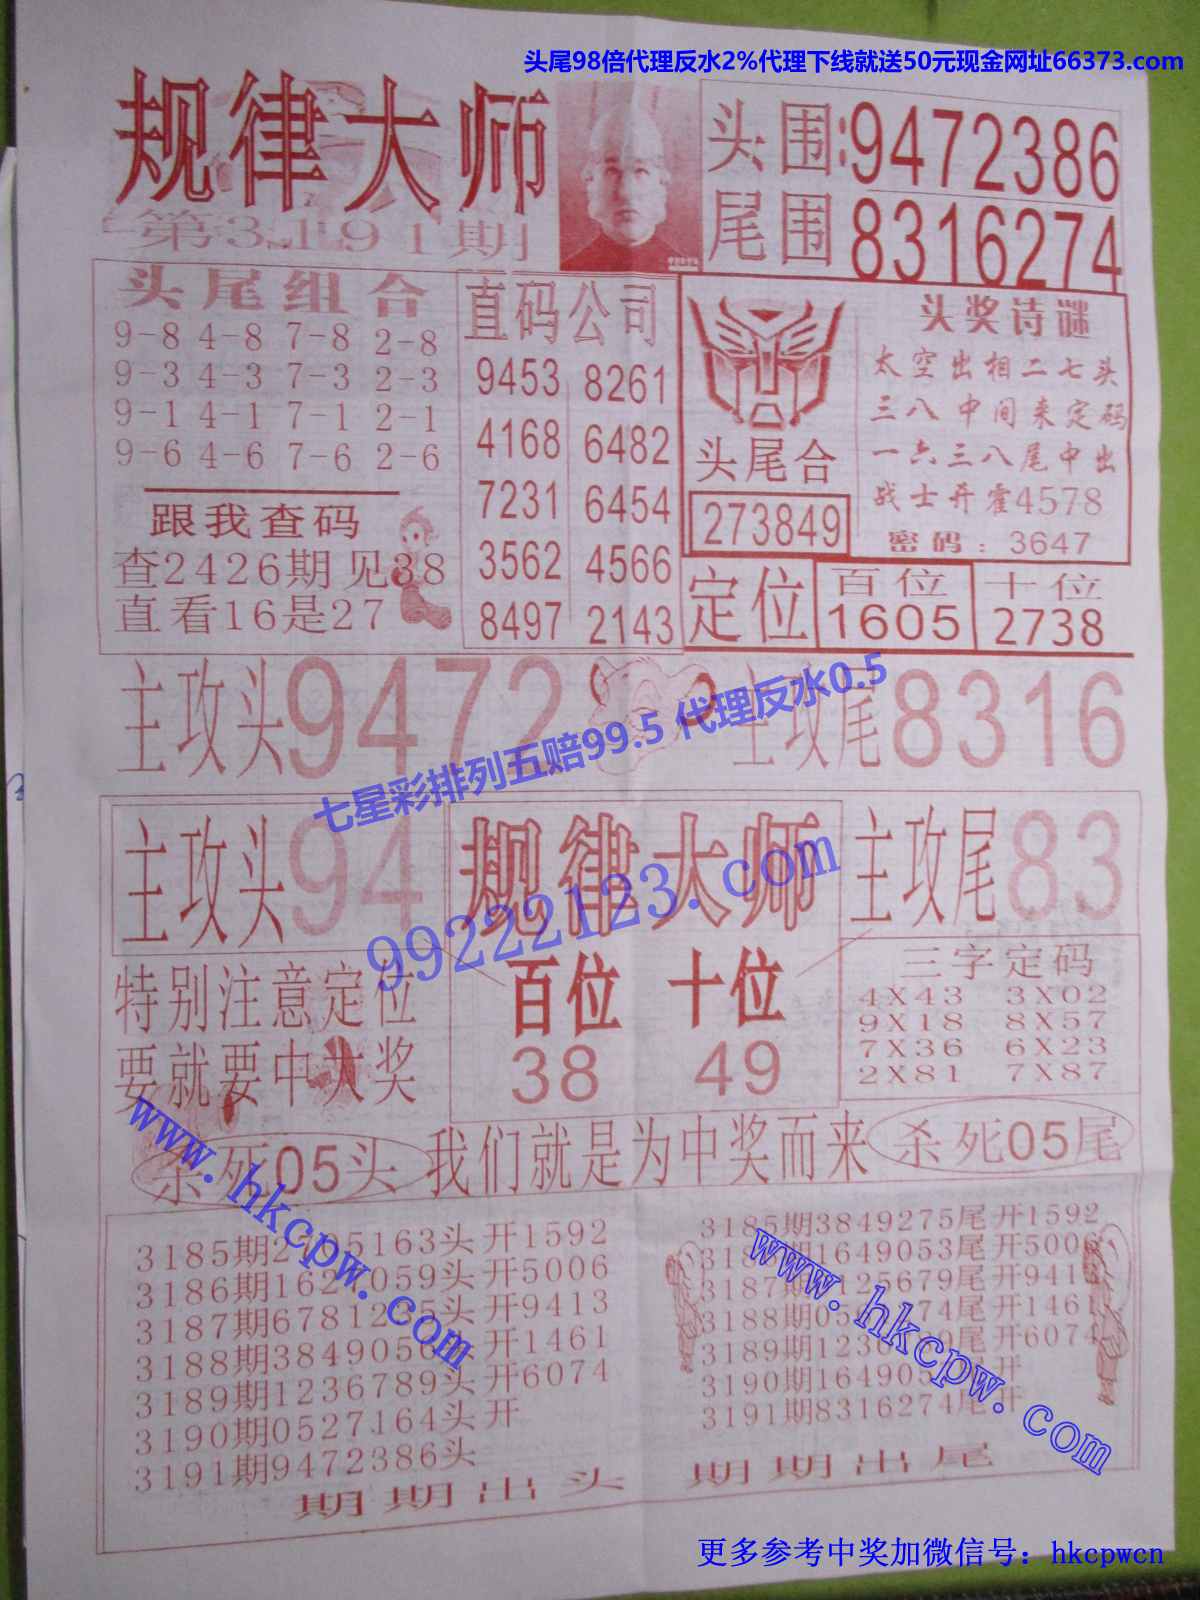 头尾98倍代理反水2%代理下线就送50元现金网址66373.com
规律大师
第3191期
头围:9472386
尾围 8316274
头尾组合
9-8 4-8 7-8 2-8
9-3 4-3 7-3 2-3
9-1 4-1 7-1 2-1
9-6 4-6 7-6 2-6
跟我查码
查2426期见38
直看16是27
直码公司
9453 8261
4168 6482
7231 6454
3562 4566
8497 2143
头尾合
273849
头奖诗谜
太空出相二七头
三八中间来定码
一六三八尾中出
战士开霍4578
密码:3647
定位
百位
1605
十位
2738
主攻头9472
主攻尾8316
七星彩排列五赔99.5 代理反水0.5
99222123.com
主攻头94
规律大师
主攻尾83
特别注意定位
要就要中大奖
百位 十位
38 49
三字定码
4X43 3X02
9X18 8X57
7X36 6X23
2X81 7X87
杀死05头
我们就是为中奖而来
杀死05尾
www.hkcpw.com
www.hkcpw.com
3185期2 5163头开1592
3186期162 059头开5006
3187期67812 5头开9413
3188期3849056 开1461
3189期1236789头开6074
3190期0527164头开
3191期9472386头
期期出头
3185期3849275尾开1592
3186期1649053尾开5006
3187期 125679尾开941
3188期05 74尾开1461
3189期1236 0尾开6074
3190期164905 开
3191期8316274尾开
期期出尾
更多参考中奖加微信号：hkcpwcn